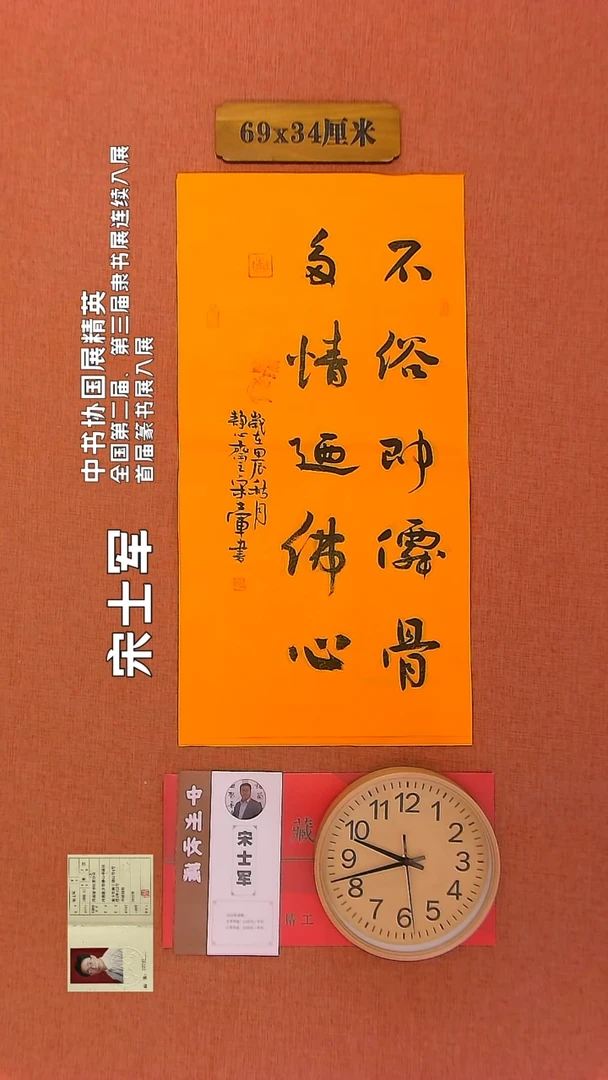 69x34厘米
不俗即儒骨
多情迺佛心
歲在甲辰秋月
靜心齋主宋士軍書
中书协国展精英
全国第二届、第三届隶书展连续入展
首届篆书展入展
宋士军
宋士军
藏
精工
12
1
2
3
4
5
6
7
8
9
10
11